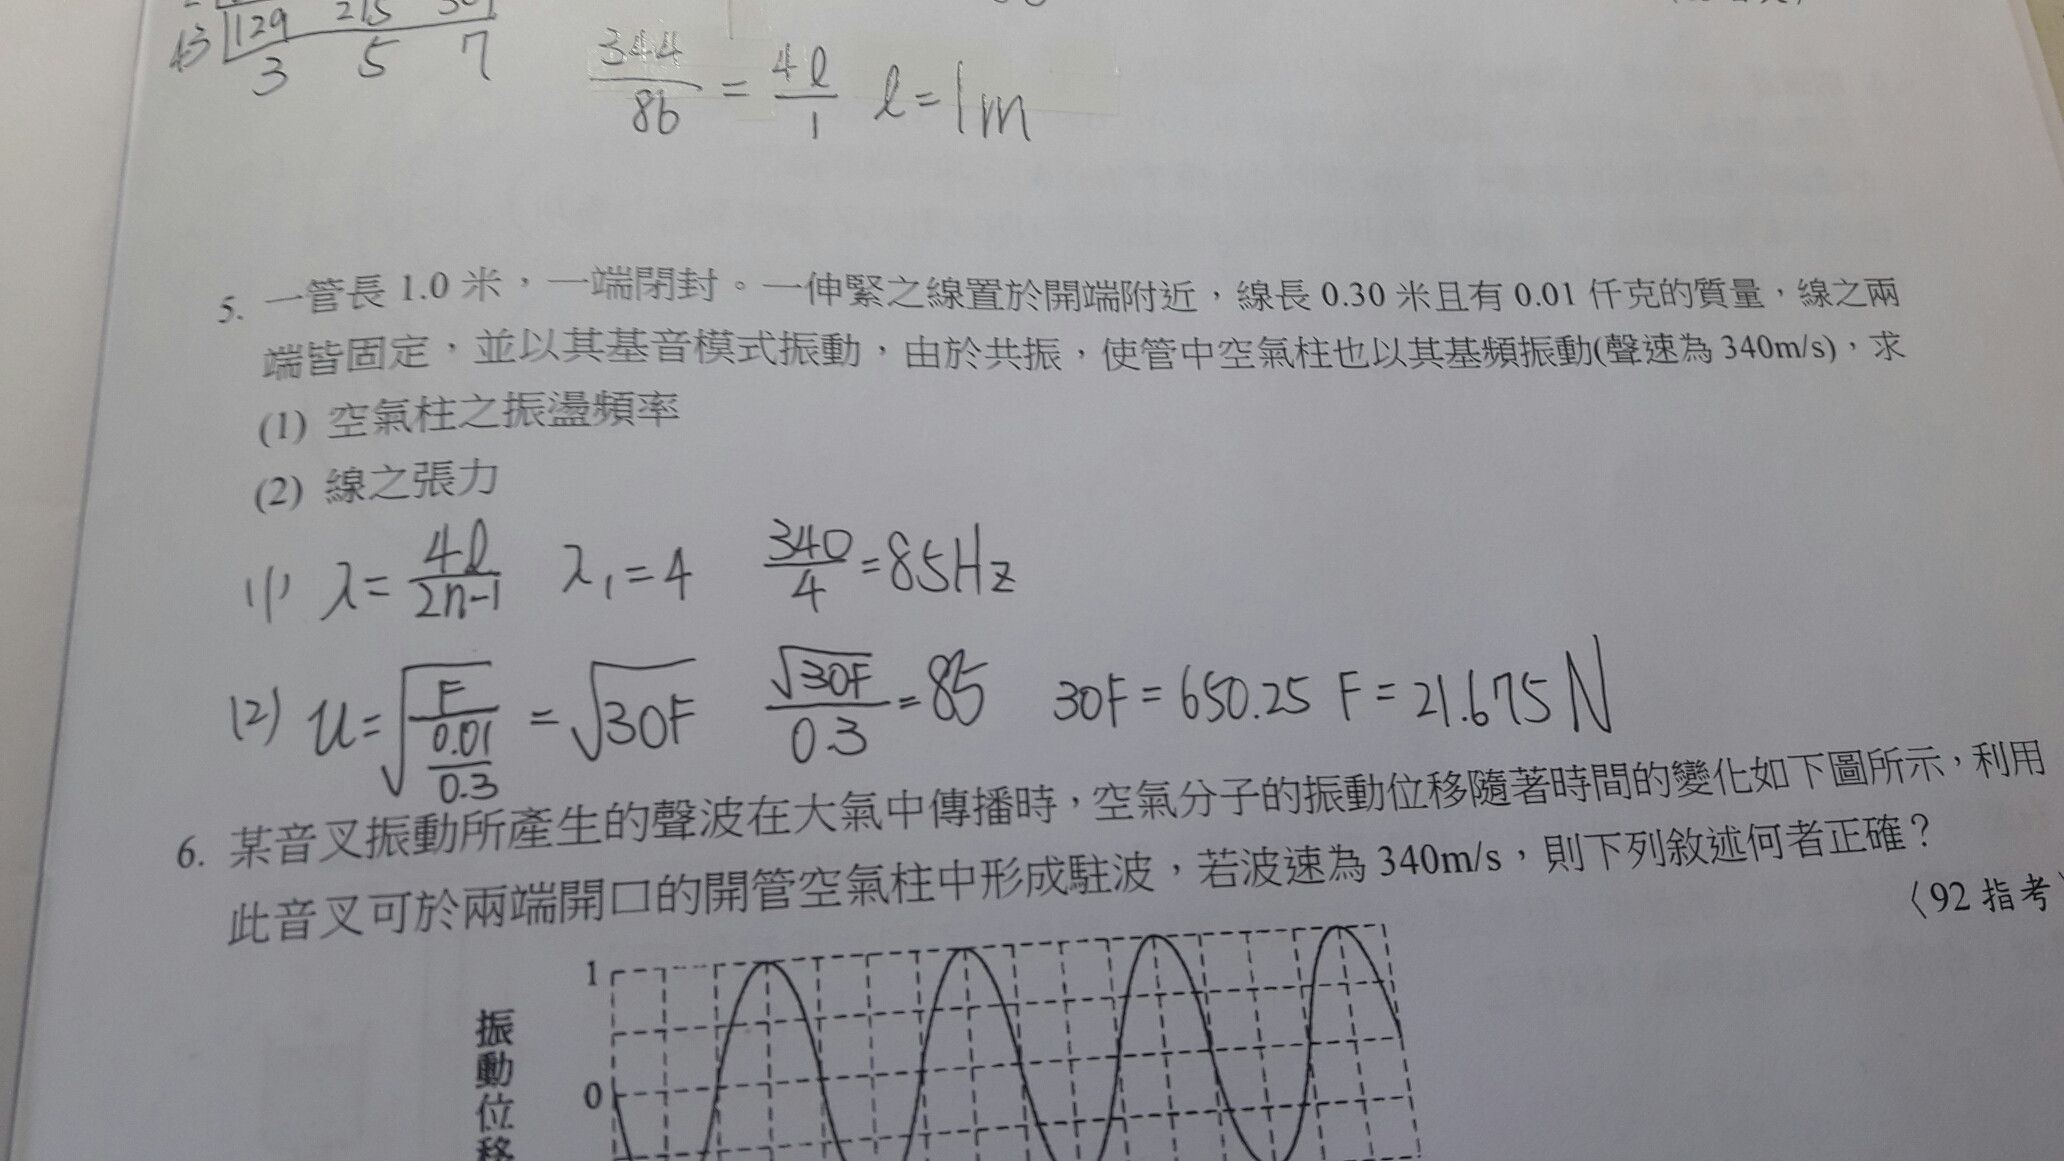 43 129 215 301
3 5 7
344/86 = 4l/1 l=1m
5. 一管長 1.0 米，一端閉封。一伸緊之線置於開端附近，線長 0.30 米且有 0.01 仟克的質量，線之兩
端皆固定，並以其基音模式振動，由於共振，使管中空氣柱也以其基頻振動(聲速為 340m/s)，求
(1) 空氣柱之振盪頻率
(2) 線之張力
(1) λ = 4l/2n-1 λ₁=4 340/4 =85Hz
(2) u=√(F/(0.01/0.3)) = √30F √30F/0.3 =85 30F = 650.25 F = 21.675 N
6. 某音叉振動所產生的聲波在大氣中傳播時，空氣分子的振動位移隨著時間的變化如下圖所示，利用
此音叉可於兩端開口的開管空氣柱中形成駐波，若波速為 340m/s，則下列敘述何者正確？
〈92 指考
1
0
振動位移